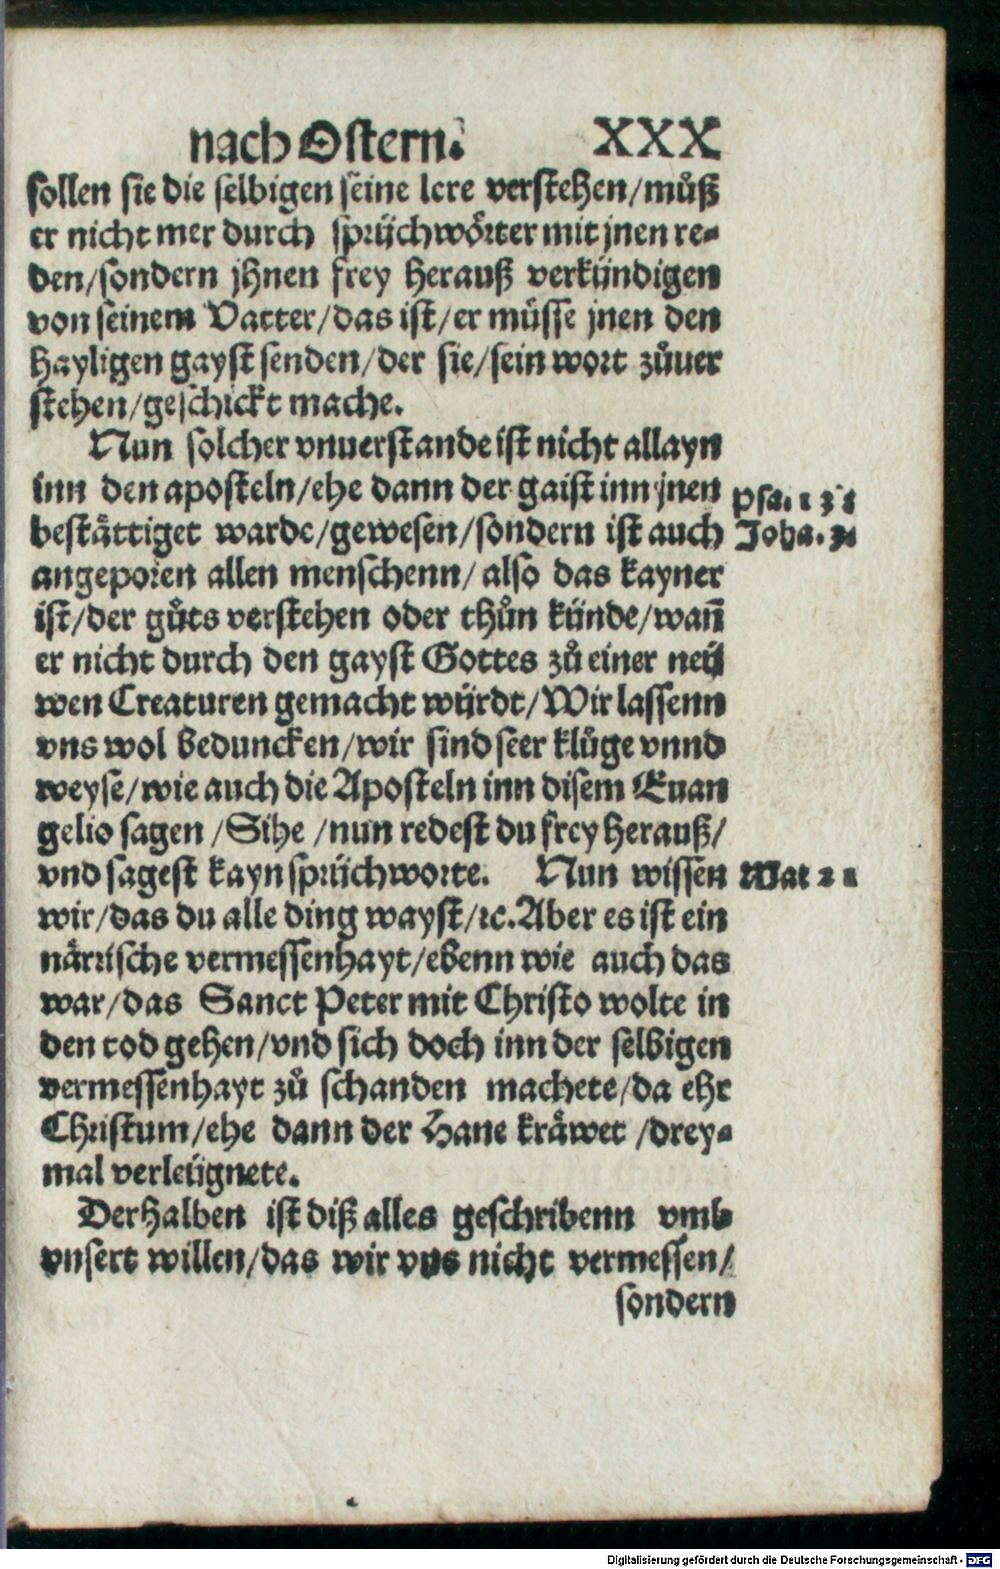 nach Ostern. XXX
sollen sie die selbigen seine lere verstehen/müß
er nicht mer durch sprüchwörter mit jnen re-
den/sondern jhnen frey herauß verkündigen
von seinem Vatter/das ist/er müsse jnen den
hayligen gayst senden/der sie/sein wort zůuer
stehen/geschickt mache.
Nun solcher vnuerstande ist nicht allayn
inn den aposteln/ehe dann der gaist inn jnen
Psa.
bestättiget warde/gewesen/sondern ist auch
Joha. 3
angeporen allen menschenn/also das kayner
ist/der gůts verstehen oder thůn künde/wañ
er nicht durch den gayst Gottes zů einer neü
wen Creaturen gemacht würdt/Wir lassenn
vns wol beduncken/wir sind seer klůge vnnd
weyse/wie auch die Aposteln inn disem Euan
gelio sagen/Sihe/nun redest du frey herauß/
vnd sagest kayn sprüchworte. Nun wissen
Mat
wir/das du alle ding wayst/ꝛc. Aber es ist ein
närrische vermessenhayt/ebenn wie auch das
war/das Sanct Peter mit Christo wolte in
den tod gehen/vnd sich doch inn der selbigen
vermessenhayt zů schanden machete/da ehr
Christum/ehe dann der Hane kräwet/drey-
mal verleügnete.
Derhalben ist diß alles geschribenn vmb
vnsert willen/das wir vns nicht vermessen/
sondern
Digitalisierung gefördert durch die Deutsche Forschungsgemeinschaft - DFG